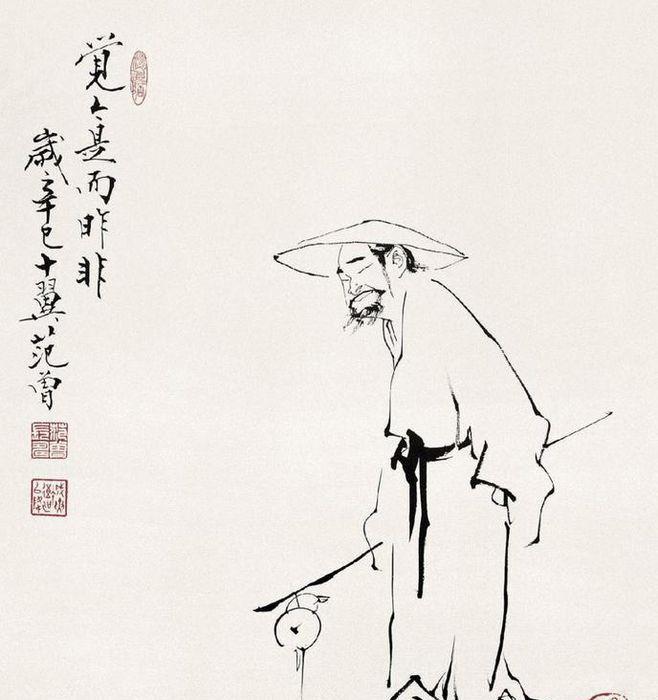 覚今是而昨非
歲之辛巳十翼范曾